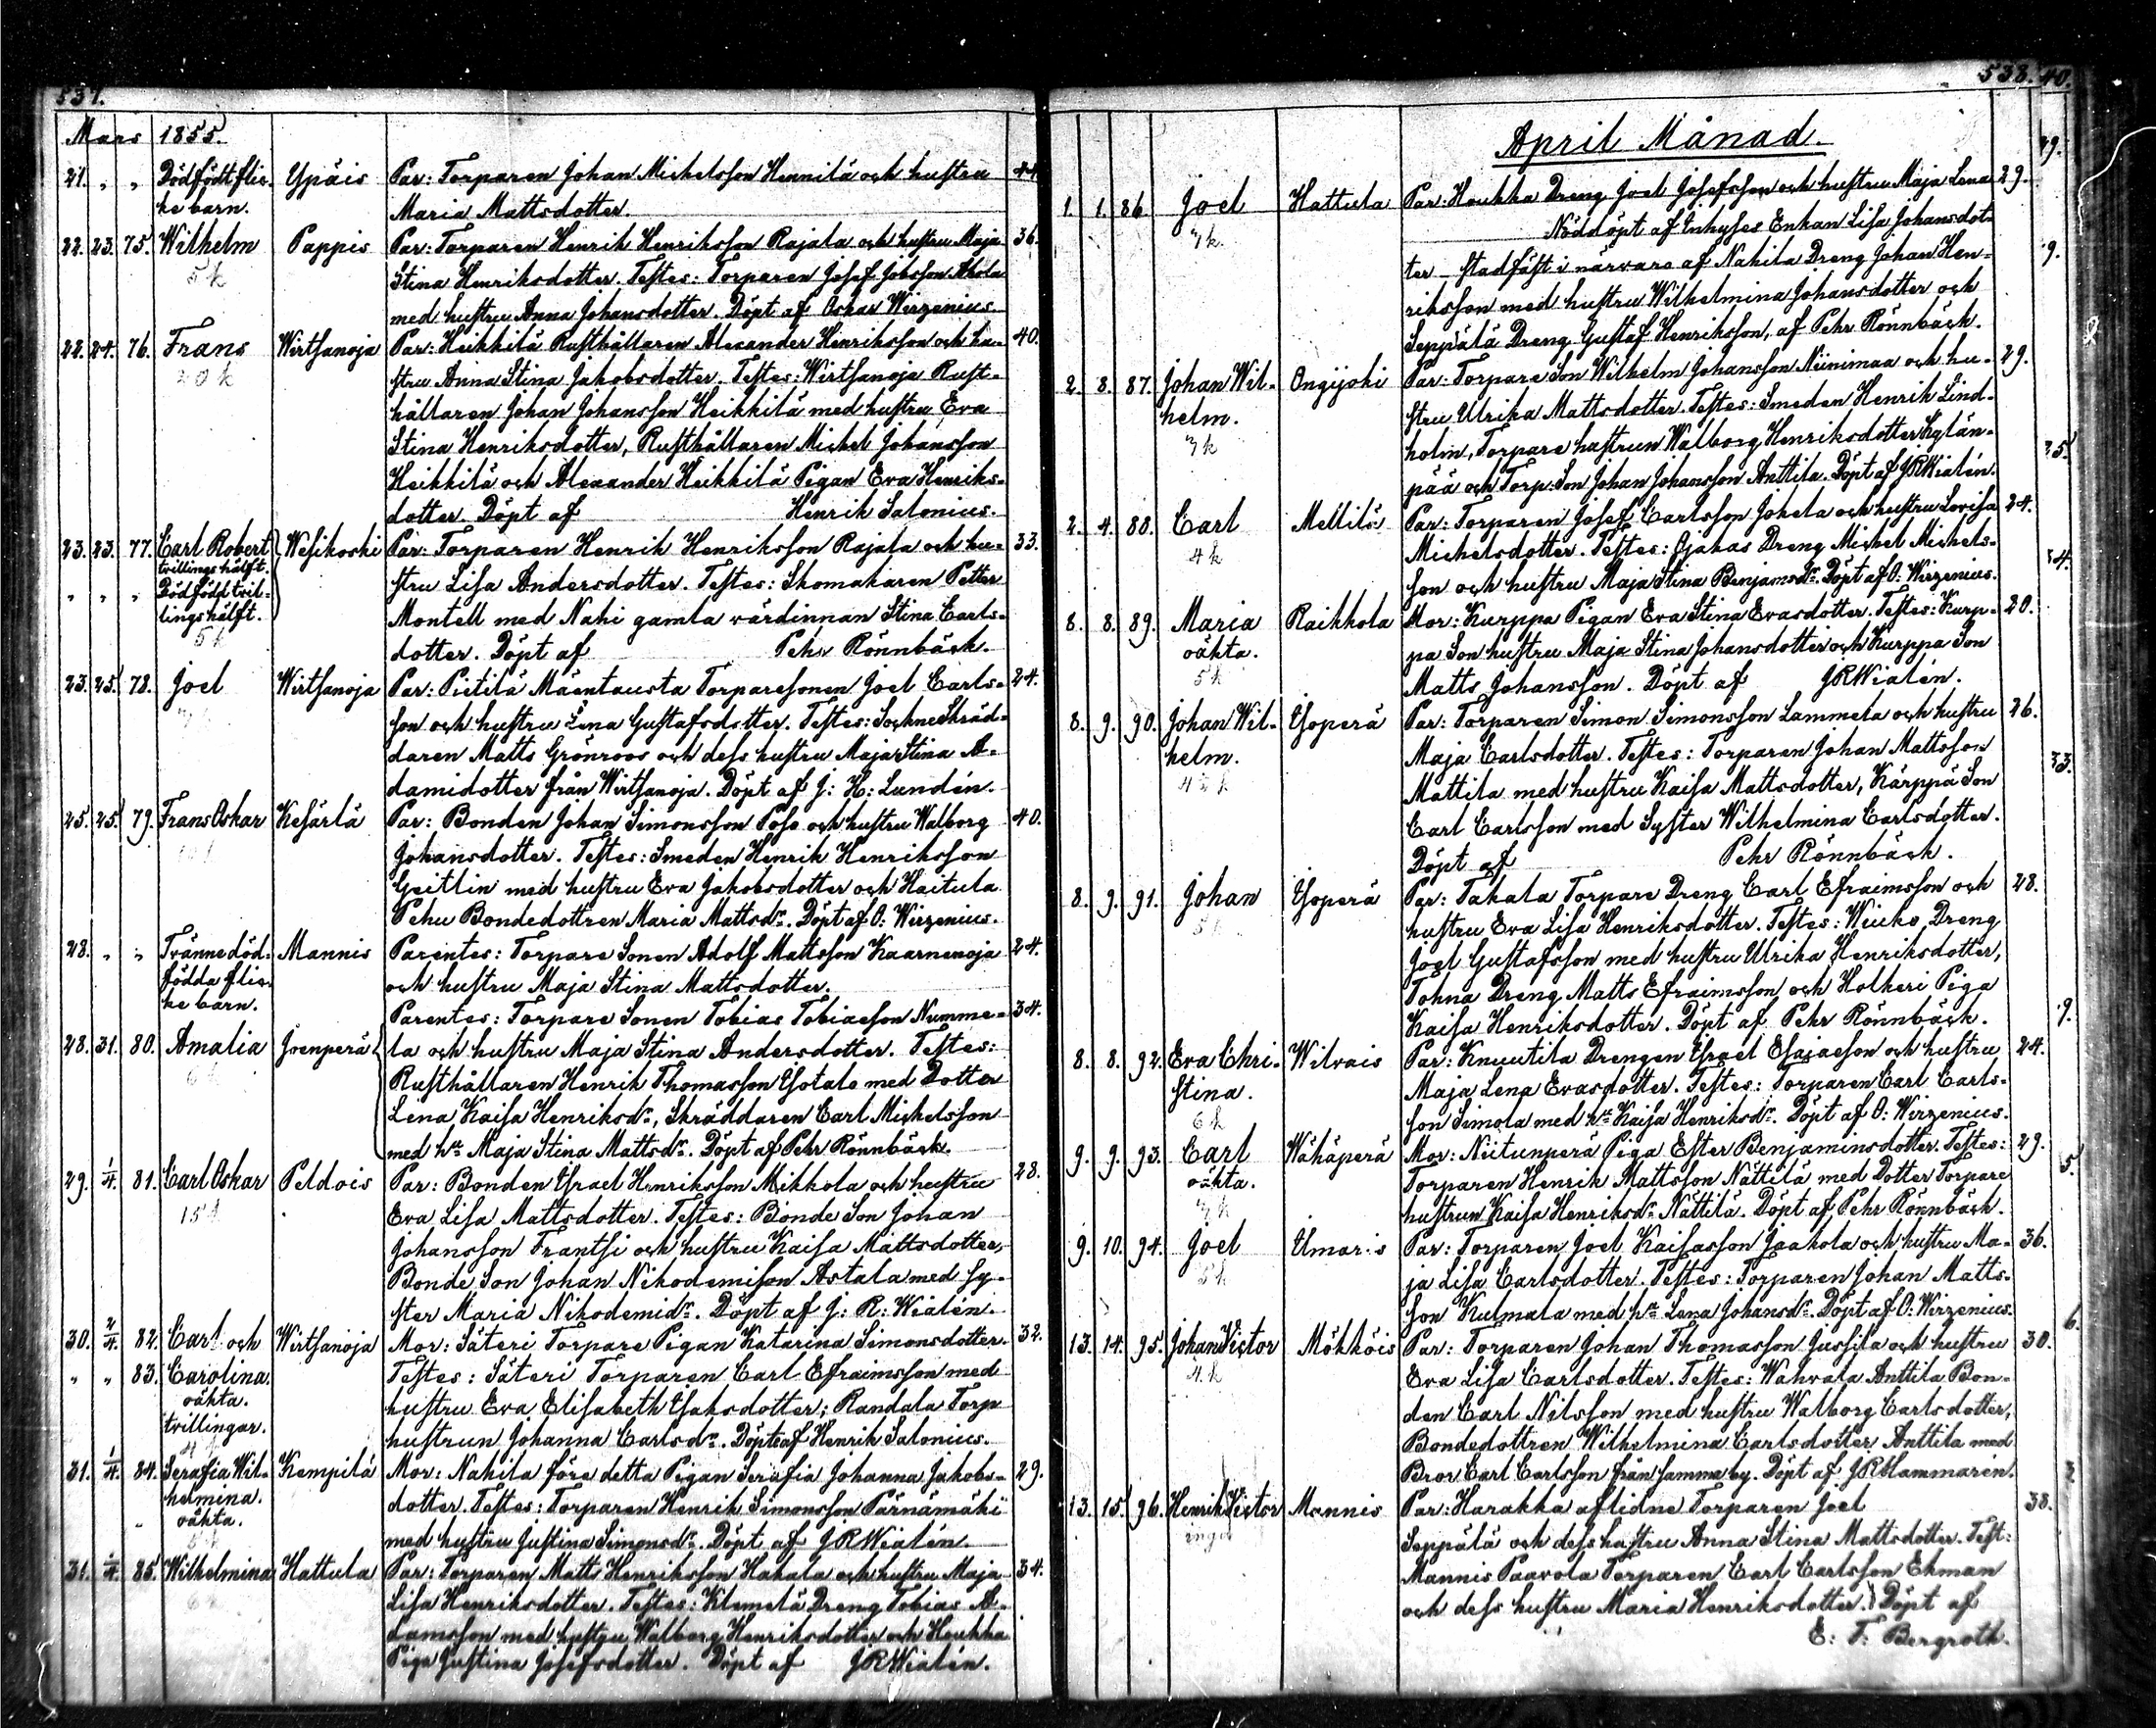 537.
Mars 1855.
21. " " Dödfödt flic- Ypäis Par: Torparen Johan Michelsson Hennilä och hustru 44
ke barn. Maria Mattsdotter.
22. 23. 75. Wilhelm Pappis Par: Torparen Henrik Henriksson Rajala och hustru Maja 36.
5 k Stina Henriksdotter. Testes: Torparen Josef Jobsson Ahola
med hustru Anna Johansdotter. Döpt af Oskar Wirzenius.
22. 24. 76. Frans Wirtsanoja Par: Heikkilä Rusthållaren Alexander Henriksson och hu- 40.
20 k stru Anna Stina Jakobsdotter. Testes: Wirtsanoja Rust-
hållaren Johan Johansson Heikkilä med hustru Eva
Stina Henriksdotter, Rusthållaren Michel Johansson
Heikkilä och Alexander Heikkilä Pigan Eva Henriks-
dotter. Döpt af Henrik Salonius.
23. 23. 77. Carl Robert Wesikoski Par: Torparen Henrik Henriksson Rajala och hu- 33.
tvillingshälft. stru Lisa Andersdotter. Testes: Skomakaren Petter
" " " Dödfödd tvil-
lingshälft. Montell med Nahi gamla värdinnan Stina Carls-
5 k dotter. Döpt af Pehr Rönnbäck.
23. 25. 78. Joel Wirtsanoja Par: Pietilä Mäentausta Torparesonen Joel Carls- 24.
son och hustru Lena Gustafsdotter. Testes: Sockne Skräd-
daren Matts Grönroos och dess hustru Maja Stina A-
damidotter från Wirtsanoja. Döpt af J: H: Lundén.
25. 25. 79. Frans Oskar Kesärlä Par: Bonden Johan Simonsson Poso och hustru Walborg 40.
Johansdotter. Testes: Smeden Henrik Henriksson
Geitlin med hustru Eva Jakobsdotter och Haitula
Pehu Bondedottren Maria Mattsdr. Döpt af O: Wirzenius.
28. " " Tvänne död- Mannis Parentes: Torpare Sonen Adolf Mattsson Kaarnenoja 24.
födda flic- och hustru Maja Stina Mattsdotter.
ke barn. Parentes: Torpare Sonen Tobias Tobiasson Numme- 34.
28. 31. 80. Amalia Joenperä la och hustru Maja Stina Andersdotter. Testes:
6 k Rusthållaren Henrik Thomasson Isotalo med Dotter
Lena Kaisa Henriksdr, Skräddaren Carl Michelsson
med hu Maja Stina Mattsdr. Döpt af Pehr Rönnbäck.
29. 1/4. 81. Carl Oskar Peldois Par: Bonden Israel Henriksson Mikkola och hustru 28.
15 k Eva Lisa Mattsdotter. Testes: Bonde Son Johan
Johansson Frantsi och hustru Kaisa Mattsdotter,
Bonde Son Johan Nikodemisson Astala med Sy-
ster Maria Nikodemidr. Döpt af J: R: Wialén.
30. 2/4. 82. Carl och Wirtsanoja Mor: Säteri Torpare Pigan Katarina Simonsdotter. 32.
" " 83. Carolina Testes: Säteri Torparen Carl Efraimsson med
oäkta. hustru Eva Elisabeth Isaksdotter; Randala Torp
tvillingar. hustrun Johanna Carlsdr. Döpte af Henrik Salonius.
31. 1/4. 84. Serafia Wil- Kempilä Mor: Nahila före detta Pigan Serafia Johanna Jakobs- 29.
helmina. dotter. Testes: Torparen Henrik Simonsson Pärnämäki
oäkta. med hustru Justina Simonsdr. Döpt af JRWialén.
31. 1/4. 85. Wilhelmina Hattula Par: Torparen Matts Henriksson Hakala och hustru Maja 34.
6 k Lisa Henriksdotter. Testes: Klemelä Dreng Tobias A-
damsson med hustru Walborg Henriksdotter och Houkka
Piga Justina Josefsdotter. Döpt af JRWialén.
538. 40.
April Månad.
1. 1. 86. Joel Hattula Par: Houkka Dreng Joel Josefsson och hustru Maja Lena 29.
3 k Nöddöpt af Inhyses Enkan Lisa Johansdot-
ter stadfäst i närvaro af Nahila Dreng Johan Hen-
riksson med hustru Wilhelmina Johansdotter och
Seppälä Dreng Gustaf Henriksson, af Pehr Rönnbäck.
2. 8. 87. Johan Wil- Ongijoki Par: Torpare Son Wilhelm Johansson Niinimaa och hu- 29.
helm. stru Ulrika Mattsdotter. Testes: Smeden Henrik Lind-
3 k holm, Torpare hustrun Walborg Henriksdotter Kylän-
pää och Torp: Son Johan Johansson Anttila. Döpt af JRWialén.
2. 4. 88. Carl Mellilä Par: Torparen Josef Carlsson Jokela och hustru Lovisa 24.
4 k Michelsdotter. Testes: Ojakas Dreng Michel Michels-
son och hustru Maja Stina Benjamsdr. Döpt af O: Wirzenius.
8. 8. 89. Maria Raikkola Mor: Kurppa Pigan Eva Stina Evasdotter. Testes: Kurp- 20.
oäkta. pa Son hustru Maja Stina Johansdotter och Kurppa Son
5 k Matts Johansson. Döpt af JRWialén.
8. 9. 90. Johan Wil- Isoperä Par: Torparen Simon Simonsson Lammela och hustru 26.
helm. Maja Carlsdotter. Testes: Torparen Johan Mattsson
Mattila med hustru Kaisa Mattsdotter, Kärppä Son
Carl Carlsson med Syster Wilhelmina Carlsdotter.
Döpt af Pehr Rönnbäck.
8. 9. 91. Johan Isoperä Par: Takala Torpare Dreng Carl Efraimsson och 28.
5 k hustru Eva Lisa Henriksdotter. Testes: Wiuko Dreng
Joel Gustafsson med hustru Ulrika Henriksdotter,
Tohna Dreng Matts Efraimsson och Holkeri Piga
Kaisa Henriksdotter. Döpt af Pehr Rönnbäck.
8. 8. 92. Eva Chri- Wilvais Par: Knuutila Drengen Israel Esajasson och hustru 24.
stina. Maja Lena Evasdotter. Testes: Torparen Carl Carls-
6 k son Simola med hu Kaisa Henriksdr. Döpt af O: Wirzenius.
9. 9. 93. Carl Wähäperä Mor: Niitunperä Piga Ester Benjaminsdotter. Testes: 29.
oäkta. Torparen Henrik Mattsson Nättilä med Dotter Torpare
3 k hustrun Kaisa Henriksdr Nättilä. Döpt af Pehr Rönnbäck.
9. 10. 94. Joel Ilmaris Par: Torparen Joel Kaisasson Jaakola och hustru Ma- 36.
5 k ja Lisa Carlsdotter. Testes: Torparen Johan Matts-
son Kulmala med hu Lena Johansdr. Döpt af O: Wirzenius.
13. 14. 95. Johan Victor Mökköis Par: Torparen Johan Thomasson Jussila och hustru 30.
4 k Eva Lisa Carlsdotter. Testes: Wahvala Anttila Bon-
den Carl Nilsson med hustru Walborg Carlsdotter,
Bondedottren Wilhelmina Carlsdotter Anttila med
Bror Carl Carlsson från samma by. Döpt af JRHammarén.
13. 15. 96. Henrik Victor Mannis Par: Harakka aflidne Torparen Joel 38.
inga Seppälä och dess hustru Anna Stina Mattsdotter. Test:
Mannis Paavola Torparen Carl Carlsson Ekman
och dess hustru Maria Henriksdotter. Döpt af
E: T: Bergroth.